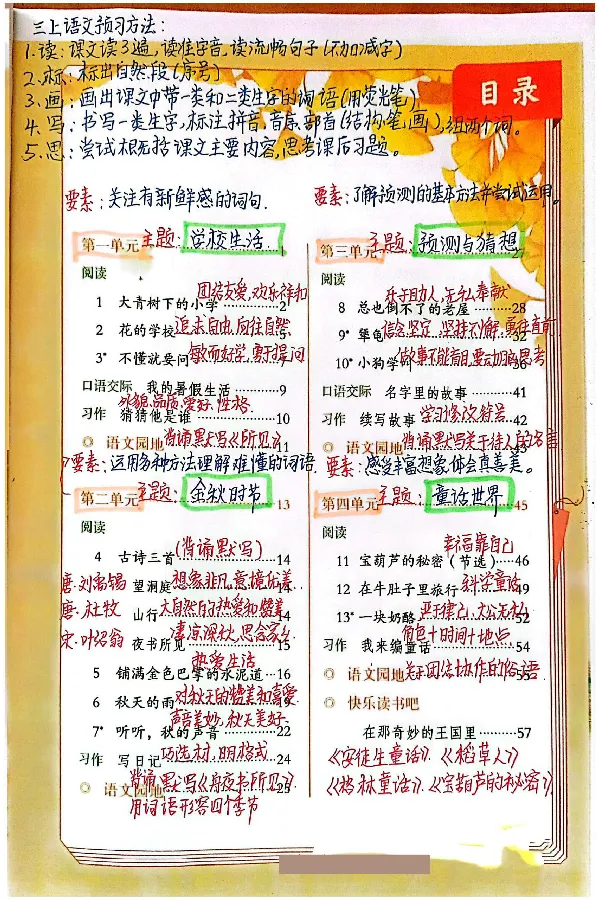 三上语文预习方法：
1.读：课文读3遍，读准字音，读流畅句子（不加减字）
2.标：标出自然段（序号）
3.画：画出课文中带一类和二类生字的词语（用荧光笔）
4.写：书写一类生字，标注拼音、音序、部首（结构、笔画），组两个词。
5.思：尝试概括课文主要内容，思考课后习题。
目录
要素：关注有新鲜感的词句.
第一单元 主题：学校生活 1
阅读
团结友爱，欢乐祥和
1 大青树下的小学 2
2 花的学校 追求自由，向往自然 5
3* 不懂就要问 敏而好学，勇于提问 7
口语交际 我的暑假生活 9
外貌、品质、爱好、性格
习作 猜猜他是谁 10
语文园地 背诵默写《所见》 11
要素：运用多种方法理解难懂的词语
第二单元 主题：金秋时节 13
阅读
4 古诗三首 (背诵默写) 14
唐·刘禹锡 望洞庭 想象非凡，意境优美 14
唐·杜牧 山行 大自然的热爱和赞美
宋·叶绍翁 夜书所见 凄凉深秋，思念家乡 15
热爱生活
5 铺满金色巴掌的水泥道 16
6 秋天的雨 对秋天的赞美和喜爱
声音美妙，秋天美好
7* 听听，秋的声音 22
习作 写日记 巧选材，明格式 24
背诵默写《舟夜书所见》
语文园地 25
用词语形容四个季节
要素：了解预测的基本方法并尝试运用。
第三单元 主题：预测与猜想 27
阅读
乐于助人，无私奉献
8 总也倒不了的老屋 28
9* 犟龟 信念坚定，坚持不懈，勇往直前 32
10* 小狗学叫 做事不能盲目，要动脑思考 36
口语交际 名字里的故事 41
习作 续写故事 学习修改符号 42
语文园地 背诵默写关于待人的名言
要素：感受丰富想象，体会真善美。
第四单元 主题：童话世界 45
阅读
幸福靠自己
11 宝葫芦的秘密（节选） 46
12 在牛肚子里旅行 科学童话 49
13* 一块奶酪 严于律己，大公无私 52
角色+时间+地点
习作 我来编童话 54
语文园地 关于团结协作的俗语 55
快乐读书吧
在那奇妙的王国里 57
《安徒生童话》、《稻草人》
《格林童话》、《宝葫芦的秘密》